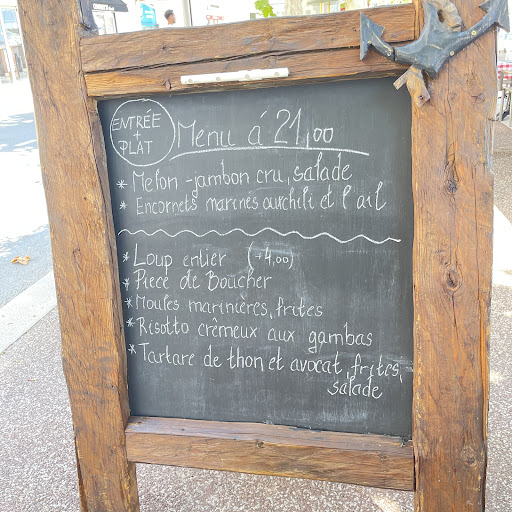 ENTRÉE
+
PLAT
Menu á 21,00
* Melon - jambon cru, salade
* Encornets marinés aux chili et l'ail
* Loup entier (+4,00)
* Piece de Boucher
* Moules marinières, frites
* Risotto crêmeux aux gambas
* Tartare de thon et avocat, frites,
salade